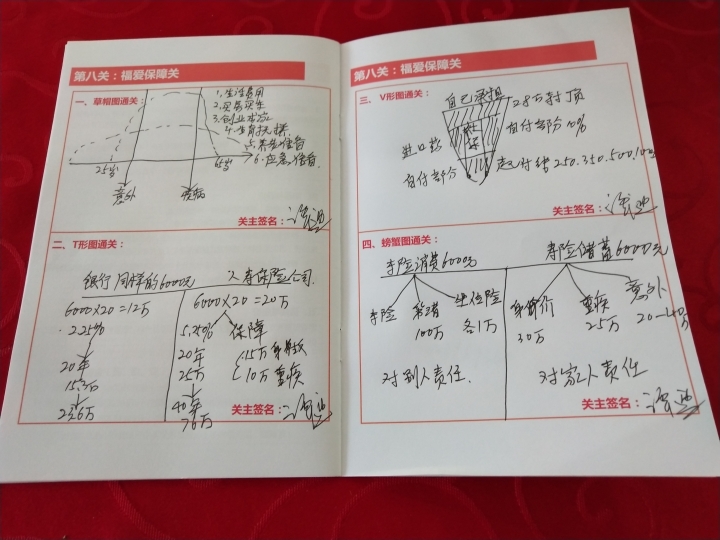 第八关：福爱保障关
一、草帽图通关：
1.生活费用
2.买房买车
3.创业
4.生育
5.养老储备
6.应急储备
25岁
65岁
意外
疾病
关主签名：
二、T形图通关：
银行同样的6000元
人寿保险公司
6000×20=12万
6000×20=20万
2.25%
5.25%
保障
20年
20年
15万
25万
10万重疾
40年
76万
关主签名：
第八关：福爱保障关
三、V形图通关：
自己承担
封顶
自付部分10%
进口药
社保
自付部分
起付线250.350.500.
关主签名：
四、螃蟹图通关：
车险消费6000元
寿险储蓄6000元
车险
第三者
坐位险
身价
重疾
意外
100万
各1万
30万
25万
对别人责任.
对家人责任
关主签名：